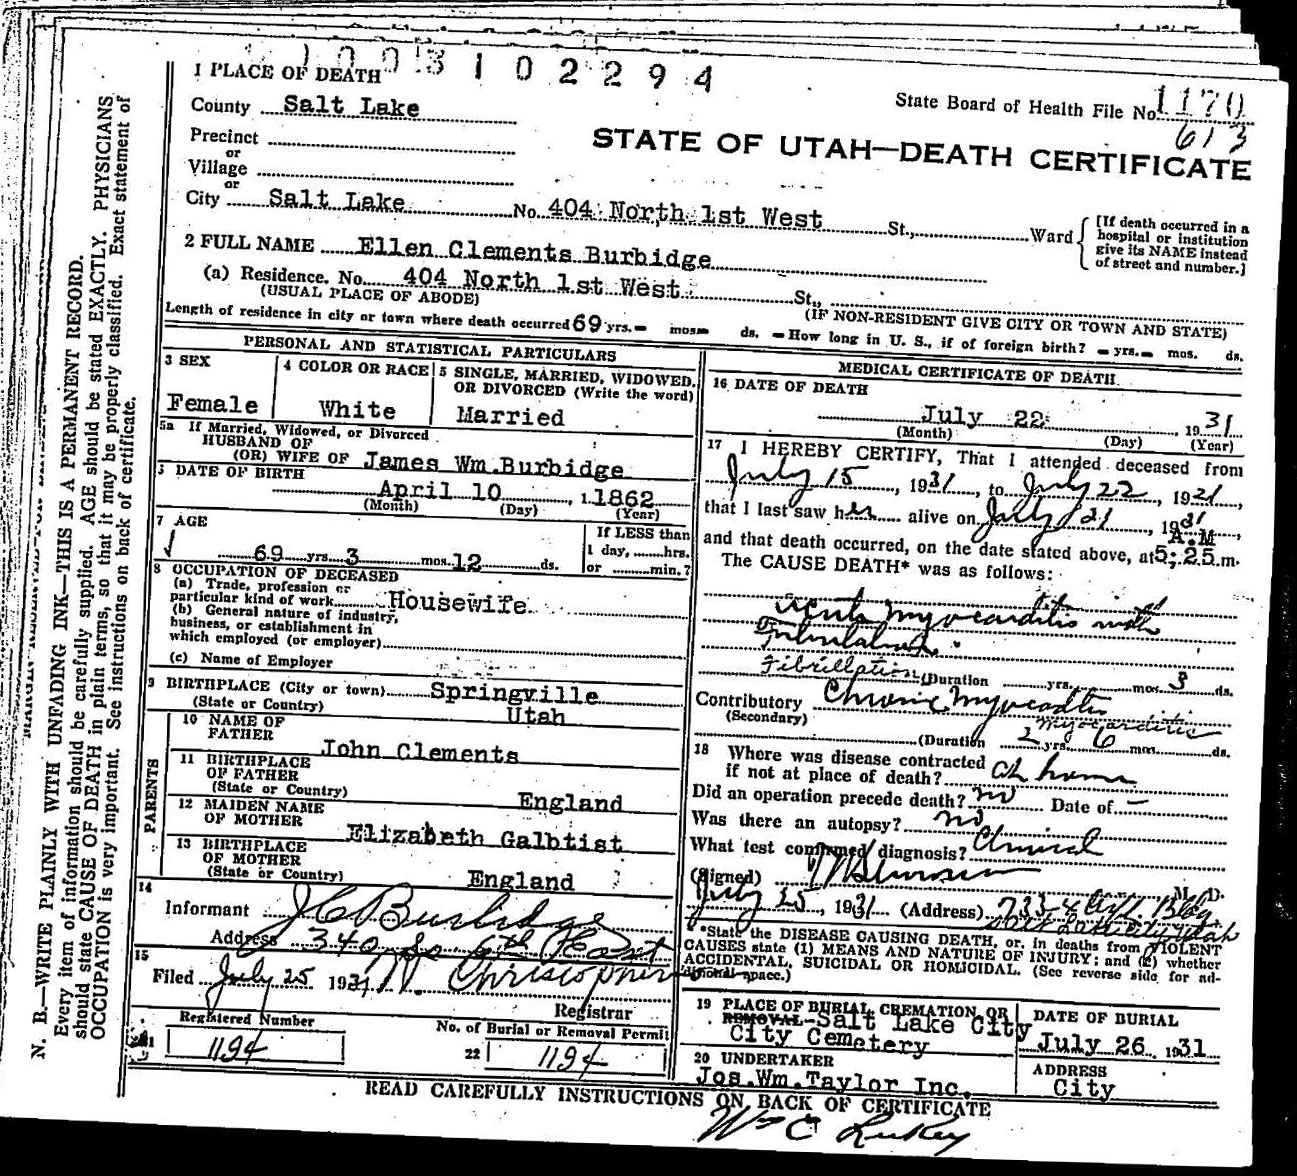 1003102294
1 PLACE OF DEATH
State Board of Health File No. 1170
County Salt Lake
613
Precinct
STATE OF UTAH—DEATH CERTIFICATE
or
Village
or
City Salt Lake No. 404 North 1st West St., Ward
[If death occurred in a
hospital or institution
give its NAME instead
of street and number.]
2 FULL NAME Ellen Clements Burbidge
(a) Residence. No. 404 North 1st West. St.,
(USUAL PLACE OF ABODE) (IF NON-RESIDENT GIVE CITY OR TOWN AND STATE)
Length of residence in city or town where death occurred 69 yrs. - mos - ds. - How long in U. S., if of foreign birth? - yrs. - mos. ds.
PERSONAL AND STATISTICAL PARTICULARS
3 SEX
Female
4 COLOR OR RACE
White
5 SINGLE, MARRIED, WIDOWED,
OR DIVORCED (Write the word)
Married
5a If Married, Widowed, or Divorced
HUSBAND OF
(OR) WIFE OF James Wm. Burbidge
DATE OF BIRTH
April 10, 1 1862
(Month) (Day) (Year)
7 AGE
69 yrs. 3 mos. 12 ds.
If LESS than
1 day, hrs.
or min.?
8 OCCUPATION OF DECEASED
(a) Trade, profession or
particular kind of work Housewife
(b) General nature of industry,
business, or establishment in
which employed (or employer)
(c) Name of Employer
9 BIRTHPLACE (City or town) Springville
(State or Country) Utah
PARENTS
10 NAME OF
FATHER John Clements
11 BIRTHPLACE
OF FATHER
(State or Country) England
12 MAIDEN NAME
OF MOTHER Elizabeth Galbtist
13 BIRTHPLACE
OF MOTHER
(State or Country) England
14
Informant J C Burbidge
Address 340 So 6th East
15
Filed July 25 1931 Christopherson
Registrar
Registered Number
21 1194
No. of Burial or Removal Permit
22 1194
MEDICAL CERTIFICATE OF DEATH
16 DATE OF DEATH
July 22, 1931
(Month) (Day) (Year)
17 I HEREBY CERTIFY, That I attended deceased from
July 15, 1931, to July 22, 1921,
that I last saw her alive on July 21, 1931
A.M
and that death occurred, on the date stated above, at 5;25 m.
The CAUSE DEATH* was as follows:
acute myocarditis with
Fibrillation (Duration yrs. mos. 3 ds.
Contributory Chronic Myocarditis
(Secondary) Myocarditis
(Duration 2 yrs. 6 mos. ds.
18 Where was disease contracted
if not at place of death? at home
Did an operation precede death? no Date of —
Was there an autopsy? no
What test confirmed diagnosis? Clinical
(Signed) M. D.
July 25, 1931 (Address) Bldg.
Salt Lake City Utah
*State the DISEASE CAUSING DEATH, or, in deaths from VIOLENT
CAUSES state (1) MEANS AND NATURE OF INJURY; and (2) whether
ACCIDENTAL, SUICIDAL OR HOMICIDAL. (See reverse side for ad-
ditional space.)
19 PLACE OF BURIAL, CREMATION, OR
REMOVAL-Salt Lake City
City Cemetery
DATE OF BURIAL
July 26, 1931
20 UNDERTAKER
Jos. Wm. Taylor Inc.
ADDRESS
City
READ CAREFULLY INSTRUCTIONS ON BACK OF CERTIFICATE
Wm C
N. B.—WRITE PLAINLY WITH UNFADING INK—THIS IS A PERMANENT RECORD.
Every item of information should be carefully supplied. AGE should be stated EXACTLY. PHYSICIANS
should state CAUSE OF DEATH in plain terms, so that it may be properly classified. Exact statement of
OCCUPATION is very important. See instructions on back of certificate.